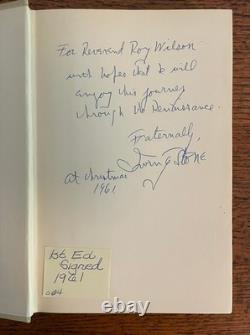 For Reverend Roy Wilson
with hopes that he will
enjoy this journey
through the Renaissance.
Fraternally,
Irving Stone
At Christmas
1961
1st Ed
Signed
1961